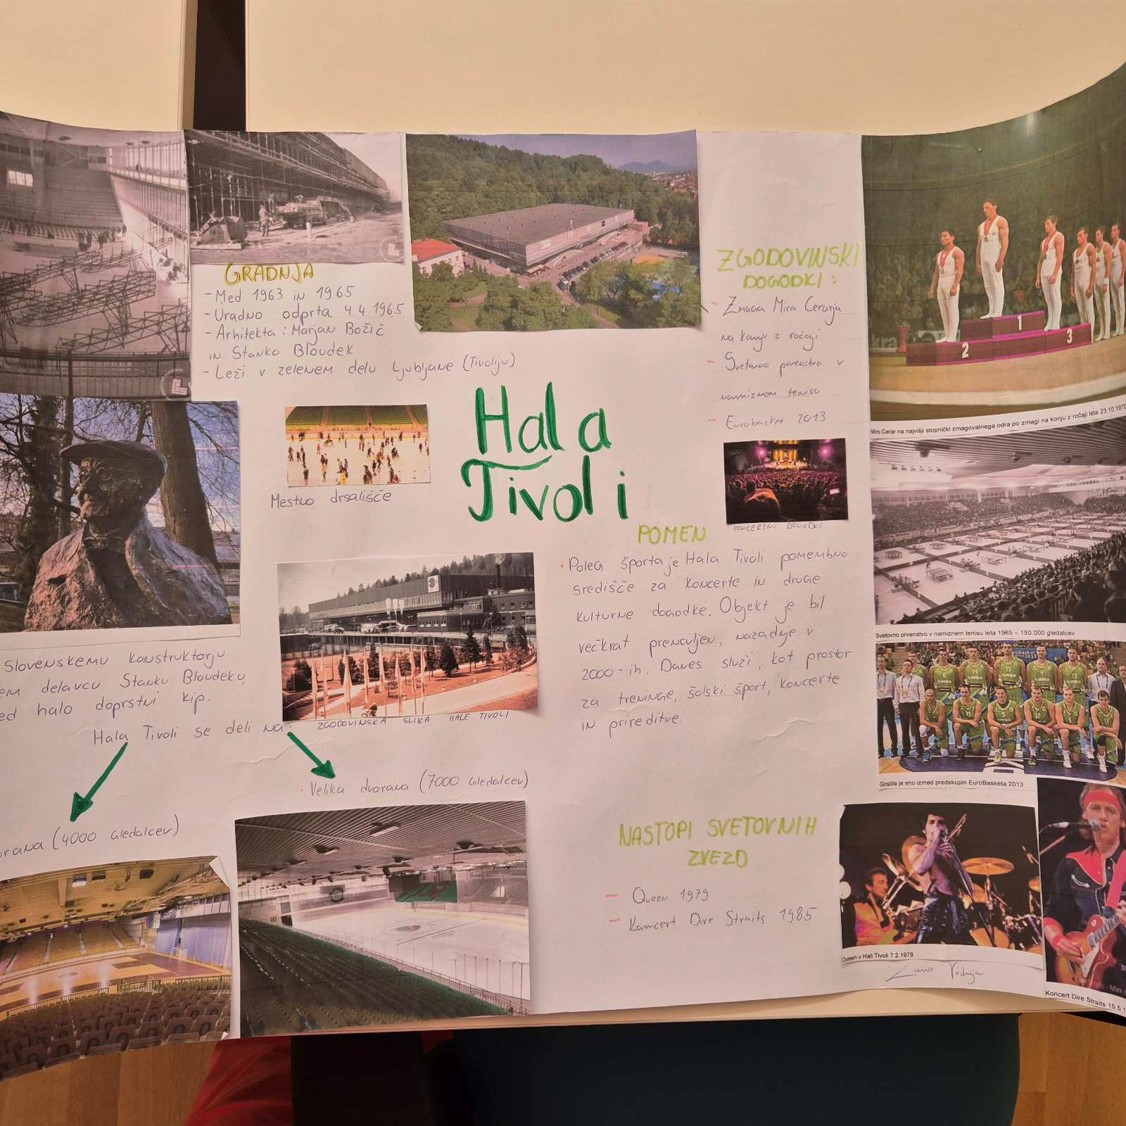 GRADNJA
- Med 1963 in 1965
- Uradno odprta 4.4.1965
- Arhitekta: Marjan Božič
in Stanko Bloudek
- Leži v zelenem delu Ljubljane (Tivoliju)
Hala
Tivoli
Mestno drsališče
ZGODOVINSKI
DOGODKI:
- Zmaga Mira Cerarja
na konju z ročaji
- Svetovno prvenstvo v
namiznem tenisu
- Eurobasket 2013
KONCERTNI DOGODKI
POMEN
Poleg športa je Hala Tivoli pomembno
središče za koncerte in druge
kulturne dogodke. Objekt je bil
večkrat prenovljen, nazadnje v
2000-ih. Danes služi, kot prostor
za treninge, šolski šport, koncerte
in prireditve.
Slovenskemu konstruktorju
delavcu Stanku Bloudeku,
halo doprsni kip.
Hala Tivoli se deli na
ZGODOVINSKA SLIKA HALE TIVOLI
(4000 gledalcev)
Velika dvorana (7000 gledalcev)
NASTOPI SVETOVNIH
ZVEZD
- Queen 1979
- Koncert Dire Straits 1985
2
1
3
Miro Cerar na najvišji stopnički zmagovalnega odra po zmagi na konju z ročaji leta 23.10.1970
Svetovno prvenstvo v namiznem tenisu leta 1965 – 150.000 gledalcev
Gostila je eno izmed predskupin EuroBasketa 2013
Queen v Hali Tivoli 7.2.1979
Koncert Dire Straits